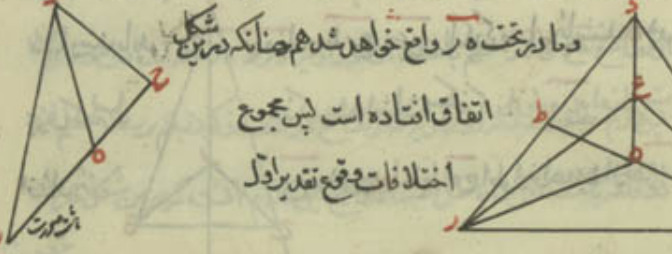 و یا در تخت ه ر واقع خواهد شد هم چنانکه درین شکل
اتفاق افتاده است پس مجموع
اختلافات وقوع تقدیر اول
ح
ه
ط
ع
ه
ر